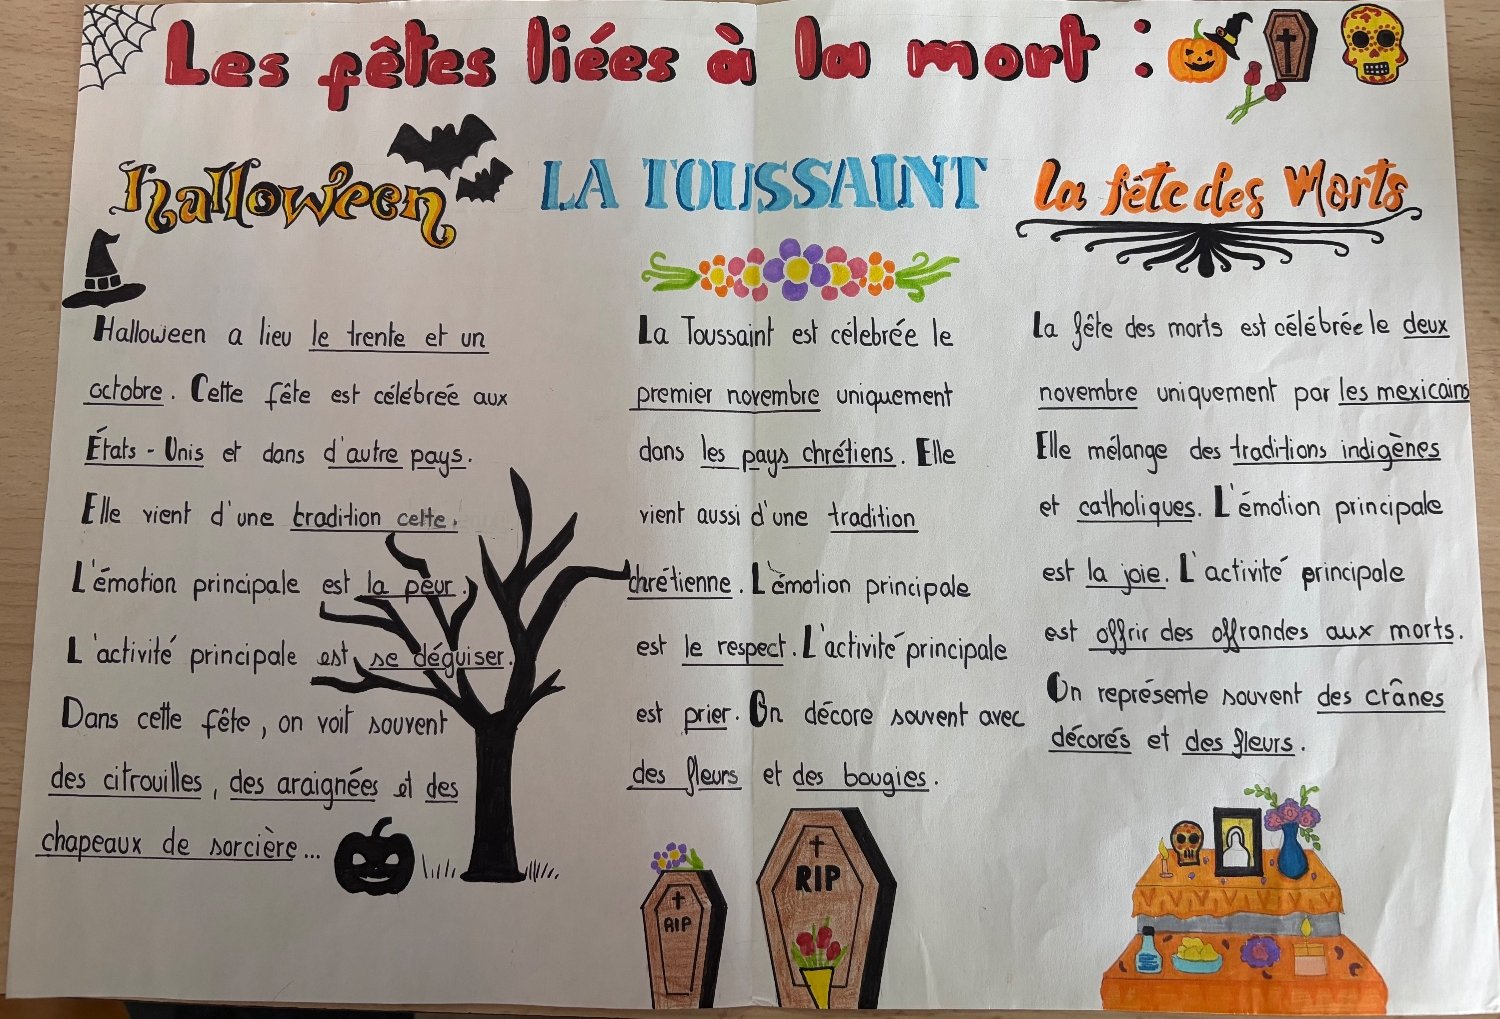 Les fêtes liées à la mort :
halloween
Halloween a lieu le trente et un
octobre. Cette fête est célébreé aux
États-Unis et dans d'autre pays.
Elle vient d'une tradition celte.
L'émotion principale est la peur.
L'activité principale est se déguiser.
Dans cette fête, on voit souvent
des citrouilles, des araignées et des
chapeaux de sorcière...
LA TOUSSAINT
La Toussaint est célebrée le
premier novembre uniquement
dans les pays chrétiens. Elle
vient aussi d'une tradition
chrétienne. L'émotion principale
est le respect. L'activité principale
est prier. On décore souvent avec
des fleurs et des bougies.
RIP
RIP
La fête des Morts
La fête des morts est célébrée le deux
novembre uniquement par les mexicains
Elle mélange des traditions indigènes
et catholiques. L'émotion principale
est la joie. L'activité principale
est offrir des offrandes aux morts.
On représente souvent des crânes
décorés et des fleurs.